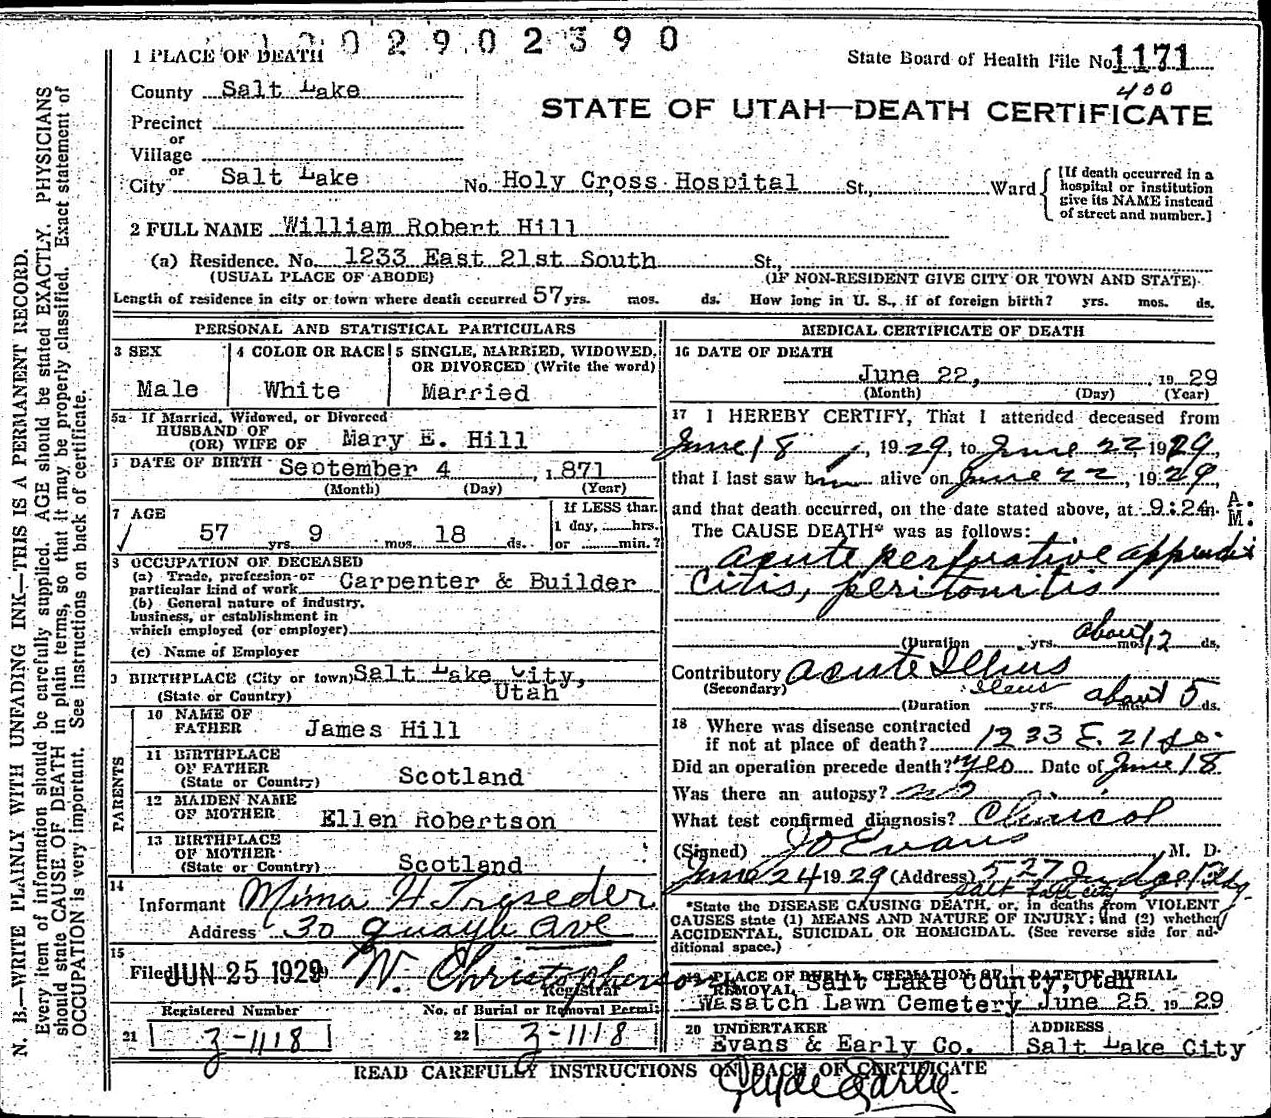 1002902390
1 PLACE OF DEATH
State Board of Health File No. 1171
400
County Salt Lake
STATE OF UTAH—DEATH CERTIFICATE
Precinct
or
Village
or
City Salt Lake No. Holy Cross Hospital St., Ward
[If death occurred in a
hospital or institution
give its NAME instead
of street and number.]
2 FULL NAME William Robert Hill
(a) Residence. No. 1233 East 21st South St.,
(USUAL PLACE OF ABODE) (IF NON-RESIDENT GIVE CITY OR TOWN AND STATE)
Length of residence in city or town where death occurred 57 yrs. mos. ds. How long in U. S., if of foreign birth? yrs. mos. ds.
PERSONAL AND STATISTICAL PARTICULARS
3 SEX
Male
4 COLOR OR RACE
White
5 SINGLE, MARRIED, WIDOWED,
OR DIVORCED (Write the word)
Married
5a If Married, Widowed, or Divorced
HUSBAND OF
(OR) WIFE OF Mary E. Hill
DATE OF BIRTH September 4, 1871
(Month) (Day) (Year)
7 AGE
57 yrs. 9 mos. 18 ds.
If LESS than
1 day, hrs.
or min.?
8 OCCUPATION OF DECEASED
(a) Trade, profession or
particular kind of work Carpenter & Builder
(b) General nature of industry,
business, or establishment in
which employed (or employer)
(c) Name of Employer
9 BIRTHPLACE (City or town) Salt Lake City,
(State or Country) Utah
PARENTS
10 NAME OF
FATHER James Hill
11 BIRTHPLACE
OF FATHER
(State or Country) Scotland
12 MAIDEN NAME
OF MOTHER Ellen Robertson
13 BIRTHPLACE
OF MOTHER
(State or Country) Scotland
14
Informant Mima H Trgseder
Address 30 Quayle Ave
15
Filed JUN 25 1929 W. Christopherson
Registrar
Registered Number No. of Burial or Removal Permit
21 3-1118 22 3-1118
MEDICAL CERTIFICATE OF DEATH
16 DATE OF DEATH
June 22, 1929
(Month) (Day) (Year)
17 I HEREBY CERTIFY, That I attended deceased from
June 18, 1929, to June 22 1929,
that I last saw him alive on June 22, 1929,
and that death occurred, on the date stated above, at 9:24 m. A.M.
The CAUSE DEATH* was as follows:
acute perforative appendi
citis, peritonitis
(Duration yrs. mos. about 12 ds.
Contributory acute Illius
(Secondary) Ileus
(Duration yrs. about 5 ds.
18 Where was disease contracted
if not at place of death? 1233 E. 21 So.
Did an operation precede death? yes Date of June 18
Was there an autopsy? no
What test confirmed diagnosis? Clinical
(Signed) J O Evans M. D.
June 24 1929 (Address) 527 Judge Bldg
Salt Lake City
*State the DISEASE CAUSING DEATH, or, in deaths from VIOLENT
CAUSES state (1) MEANS AND NATURE OF INJURY; and (2) whether
ACCIDENTAL, SUICIDAL OR HOMICIDAL. (See reverse side for ad-
ditional space.)
19 PLACE OF BURIAL CREMATION OR DATE OF BURIAL
REMOVAL Salt Lake County, Utah
Wasatch Lawn Cemetery June 25 1929
20 UNDERTAKER ADDRESS
Evans & Early Co. Salt Lake City
READ CAREFULLY INSTRUCTIONS ON BACK OF CERTIFICATE
Clyde Early
N. B.—WRITE PLAINLY WITH UNFADING INK—THIS IS A PERMANENT RECORD.
Every item of information should be carefully supplied. AGE should be stated EXACTLY. PHYSICIANS
should state CAUSE OF DEATH in plain terms, so that it may be properly classified. Exact statement of
OCCUPATION is very important. See instructions on back of certificate.